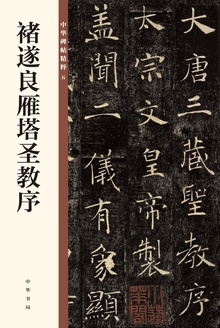 褚遂良雁塔圣教序
中华碑帖精粹 五
中华书局
大唐三藏聖教序
太宗文皇帝製
蓋聞二儀有象顯